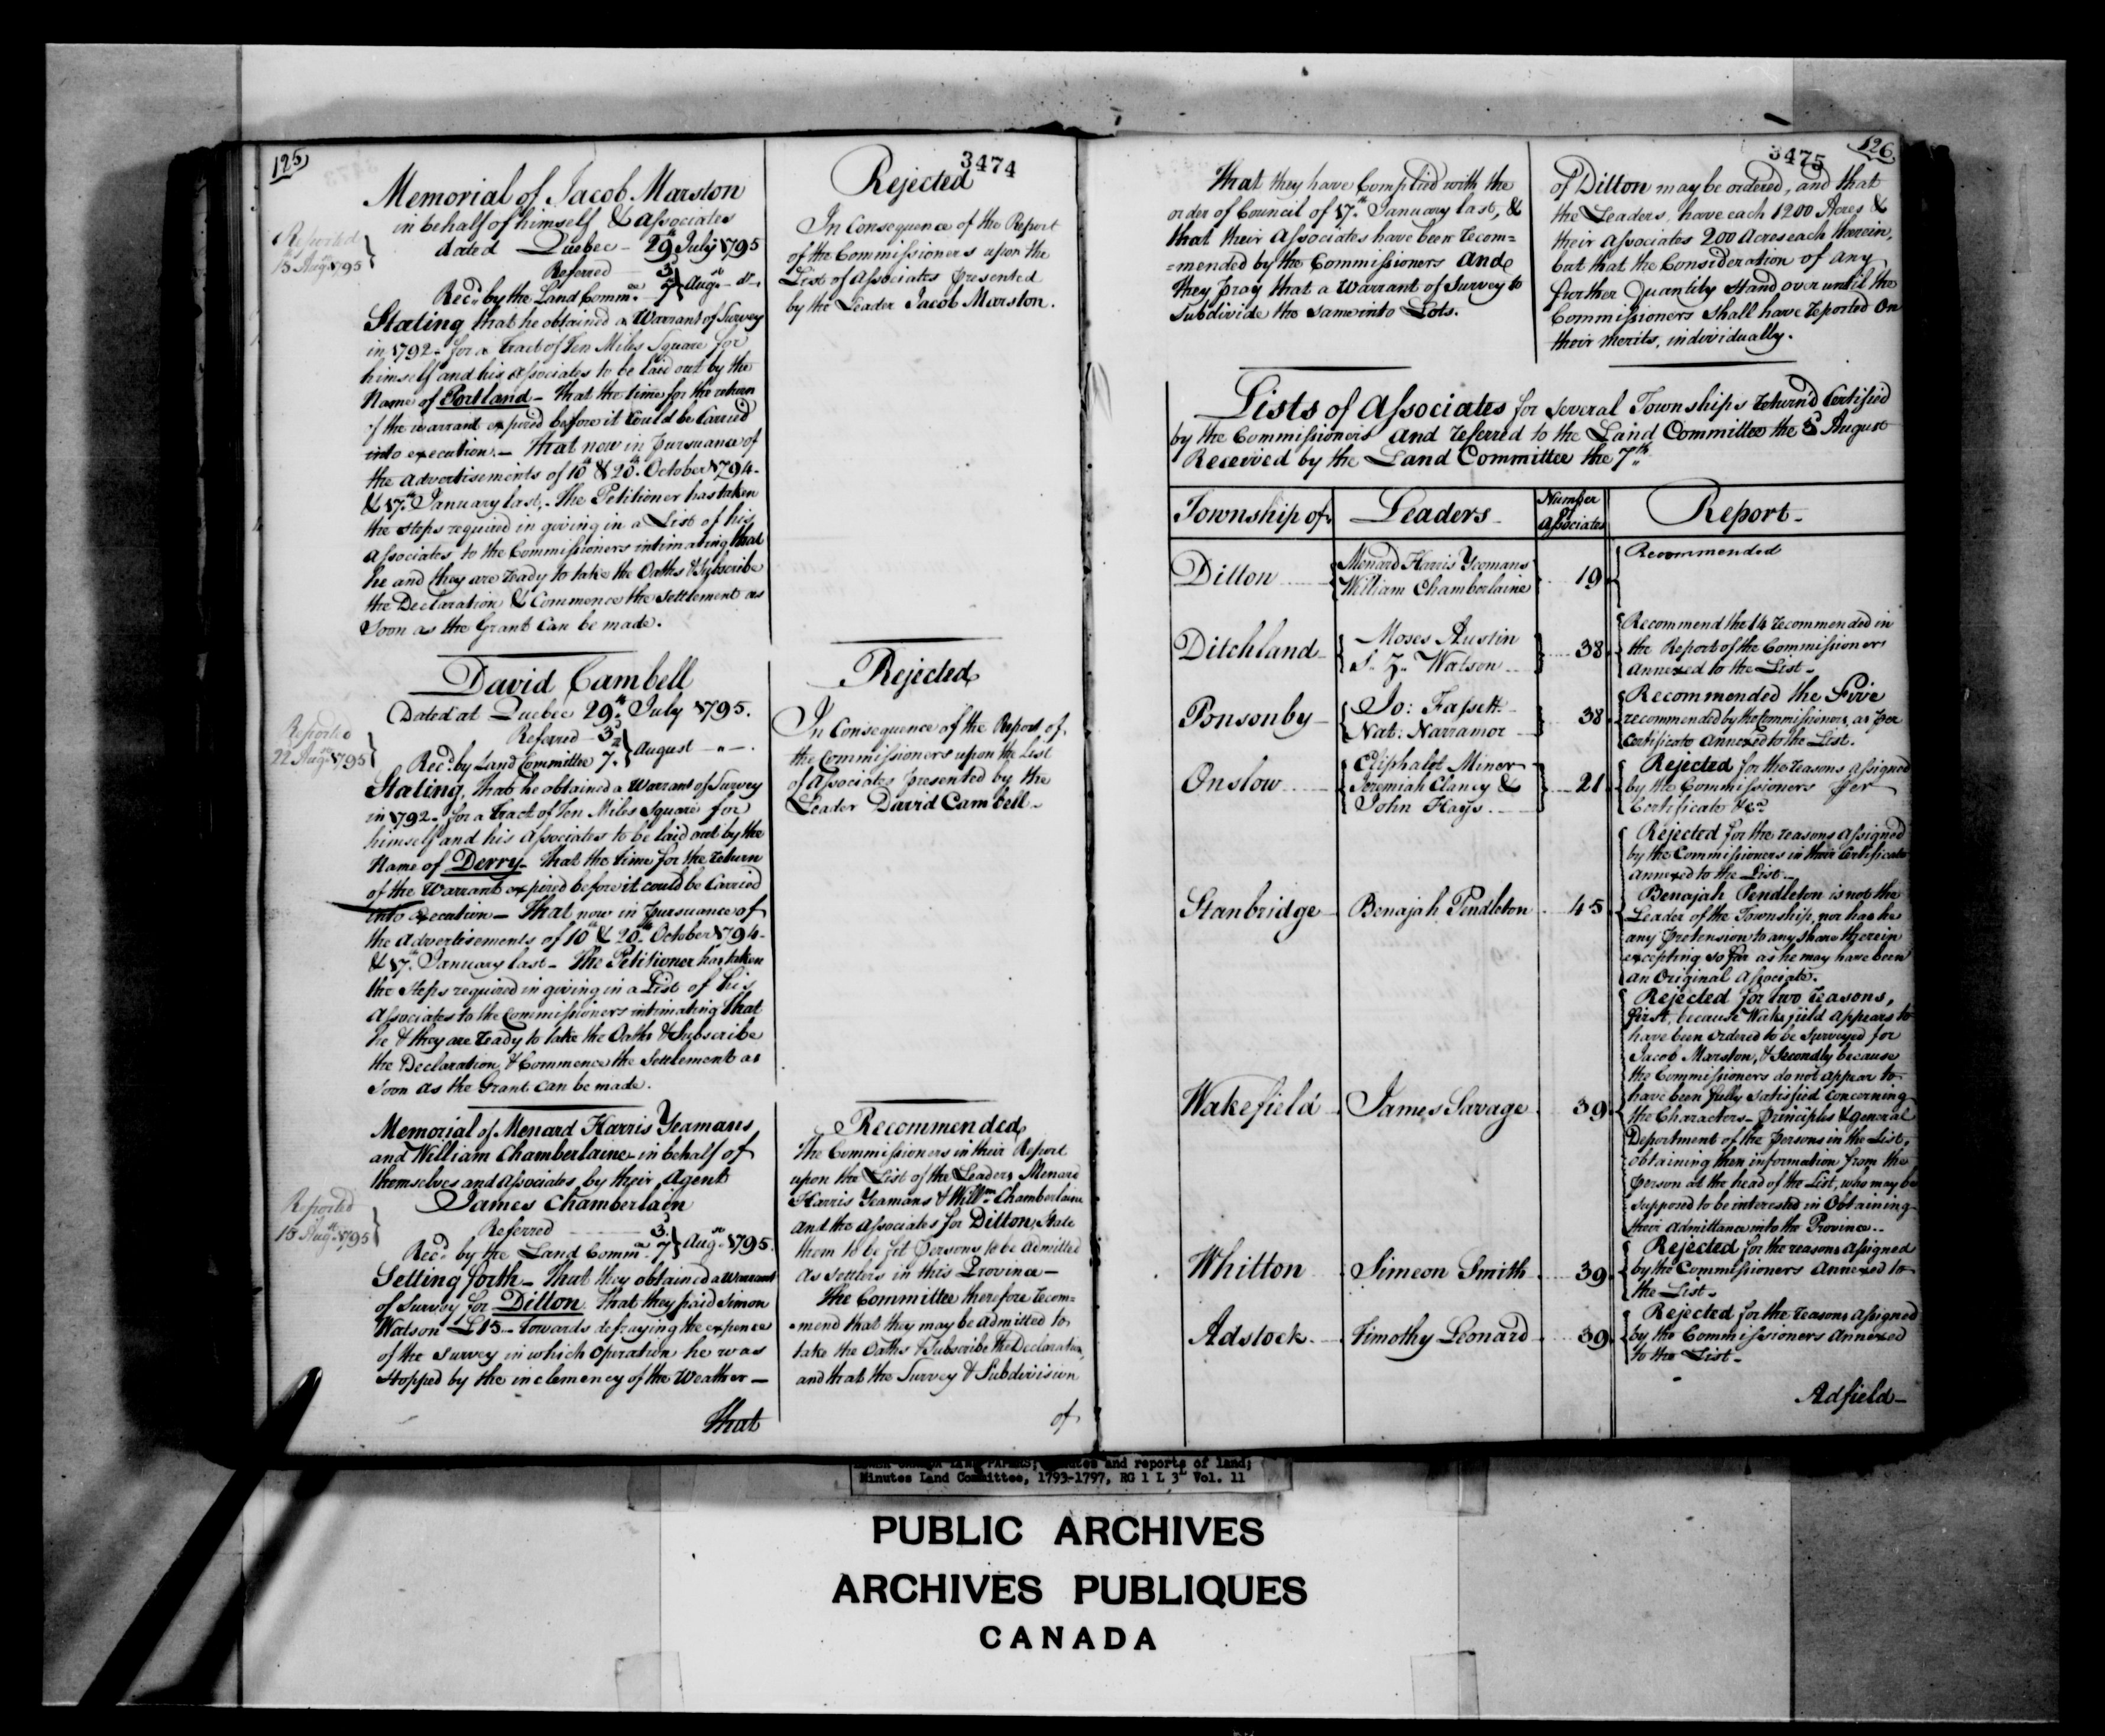 125
3474
Memorial of Jacob Marston
in behalf of himself & Associates
dated Quebec - 29th July 1795
Reported
15 Augt 1795
Referred 3d
Recd by the Land Comme 7th } Augst - do -
Stating that he obtained a Warrant of Survey
in 1792 - for a Tract of Ten Miles Square for
himself and his Associates to be laid out by the
Name of Portland - That the time for the return
of the warrant expired before it could be Carried
into execution. - That now in pursuance of
the advertisements of 10th & 20th October 1794 -
& 17th January last, - The Petitioner has taken
the steps required in giving in a List of his
Associates to the Commissioners intimating that
he and they are ready to take the Oaths & Subscribe
the Declaration & Commence the Settlement as
Soon as the Grant can be made.
Rejected
In Consequence of the Report
of the Commissioners upon the
List of Associates presented
by the Leader Jacob Marston.
David Cambell
Dated at Quebec 29th July 1795.
Reported
22 Augt 1795
Referred - 3d
Recd by Land Committee 7th } August - " -
Stating, that he obtained a Warrant of Survey
in 1792 - for a Tract of Ten Miles Square for
himself and his Associates to be laid out by the
Name of Derry - That the time for the return
of the Warrant expired before it could be Carried
into execution - That now in pursuance of
the advertisements of 10th & 20th October 1794 -
& 17th January last - The Petitioner has taken
the steps required in giving in a List of his
Associates to the Commissioners intimating that
he & they are ready to take the Oaths & Subscribe
the Declaration, & Commence the Settlement as
Soon as the Grant can be made.
Rejected
In Consequence of the Report of
the Commissioners upon the List
of Associates presented by the
Leader David Cambell.
Memorial of Menard Harris Yeamans
and William Chamberlaine in behalf of
themselves and Associates by their Agent
James Chamberlain
Reported
15 Augt 1795
Referred 3d
Recd by the Land Comme 7th } Augst 1795.
Setting forth - That they obtained a Warrant
of Survey for Ditton. That they paid Simon
Watson £15 - towards defraying the expence
of the survey in which Operation he was
stopped by the inclemency of the Weather -
That
Recommended
The Commissioners in their Report
upon the List of the Leaders Menard
Harris Yeamans & Willm Chamberlaine
and the Associates for Ditton, State
them to be fit persons to be admitted
as settlers in this Province -
The Committee therefore recom=
=mend that they may be admitted to
take the Oaths & Subscribe the Declaration,
and that the Survey & Subdivision
of
3475
126
That they have Complied with the
order of Council of 17th January last, &
that their Associates have been recom=
=mended by the Commissioners and
they pray that a Warrant of Survey to
Subdivide the same into Lots.
of Ditton may be ordered, and that
the Leaders, have each 1200 Acres &
their Associates 200 Acres each therein,
but that the Consideration of any
further Quantity stand over until the
Commissioners shall have reported on
their merits, individually.
Lists of Associates for several Townships return'd Certified
by the Commissioners and referred to the Land Committee the 3d August
Received by the Land Committee the 7th
Township of Leaders Number Associates Report
Ditton Menard Harris Yeomans
William Chamberlaine 19 Recommended
Ditchland Moses Austin
S. Z. Watson 38 Recommend the 14 recommended in
the Report of the Commissioners
annexed to the List -
Ponsonby Jo: Fassett
Nat: Narramor 38 Recommended the Five
recommended by the Commissioners, as per
Certificate annexed to the List.
Onslow Eliphalet Miner
Jeremiah Clancy &
John Hays 21 Rejected for the reasons assigned
by the Commissioners per
Certificate &ca
Stanbridge Benajah Pendleton 45 Rejected for the reasons assigned
by the Commissioners in their Certificate
annexed to the List -
Benajah Pendleton is not the
Leader of the Township, nor has he
any pretension to any share therein
excepting so far as he may have been
an Original Associate.
Wakefield James Savage 39 Rejected for two reasons,
first, because Wakefield appears to
have been ordered to be surveyed for
Jacob Marston, & Secondly because
the Commissioners do not appear to
have been fully satisfied concerning
the Characters - Principles & general
Deportment of the persons in the List,
obtaining their information from the
person at the head of the List, who may be
supposed to be interested in Obtaining
their admittance into the Province. -
Whitton Simeon Smith 39 Rejected for the reasons assigned
by the Commissioners annexed to
the List -
Adstock Timothy Leonard 39 Rejected for the reasons assigned
by the Commissioners annexed
to the List -
Adfield -
LOWER CANADA LAND PAPERS; Minutes and reports of land;
Minutes Land Committee, 1793-1797, RG 1 L 3L Vol. 11
PUBLIC ARCHIVES
ARCHIVES PUBLIQUES
CANADA